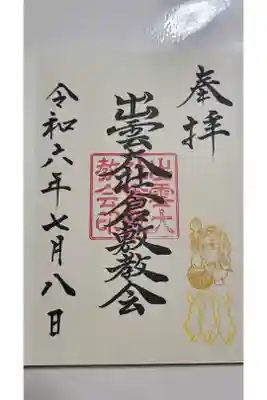 奉拝
出雲大社倉敷教会
令和六年七月八日
出雲大
教会印